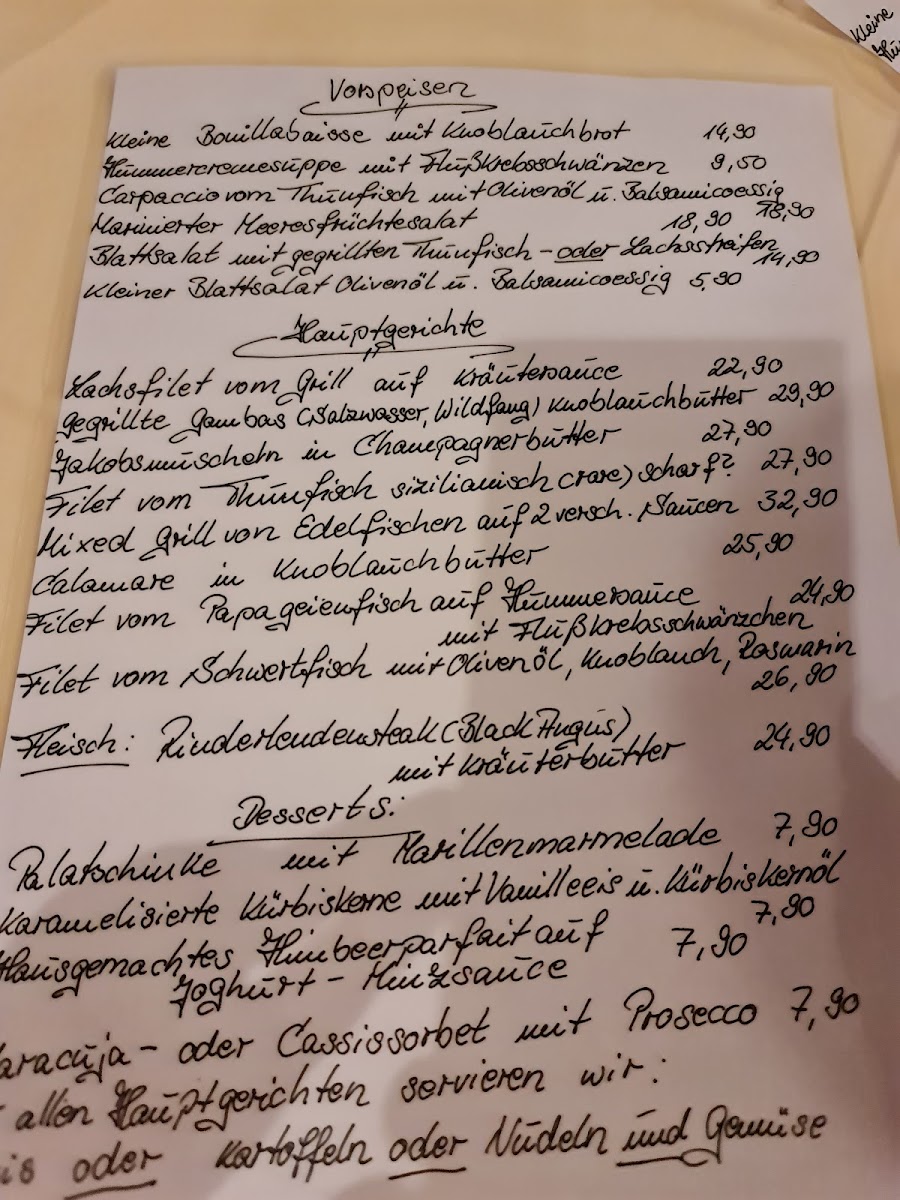 Kleine
Vorspeisen
Kleine Bouillabaisse mit Knoblauchbrot 14,90
Hummercremesuppe mit Flußkrebsschwänzen 9,50
Carpaccio vom Thunfisch mit Olivenöl u. Balsamicoessig
18,90
Marinierter Meeresfrüchtesalat 18,90
Blattsalat mit gegrillten Thunfisch - oder Lachsstreifen
14,90
Kleiner Blattsalat Olivenöl u. Balsamicoessig 5,90
Hauptgerichte
Lachsfilet vom Grill auf Kräutersauce 22,90
gegrillte Gambas (Salzwasser, Wildfang) Knoblauchbutter 29,90
Jakobsmuscheln in Champagnerbutter 27,90
Filet vom Thunfisch sizilianisch (rare) scharf? 27,90
Mixed Grill von Edelfischen auf 2 versch. Saucen 32,90
Calamare in Knoblauchbutter 25,90
Filet vom Papageienfisch auf Hummersauce 24,90
mit Flußkrebsschwänzchen
Filet vom Schwertfisch mit Olivenöl, Knoblauch, Rosmarin
26,90
Fleisch: Rinderlendensteak (Black Angus)
mit Kräuterbutter 24,90
Desserts:
Palatschinke mit Marillenmarmelade 7,90
Karamelisierte Kürbiskerne mit Vanilleeis u. Kürbiskernöl
7,90
Hausgemachtes Himbeerparfait auf 7,90
Joghurt - Minzsauce
aracuja - oder Cassissorbet mit Prosecco 7,90
allen Hauptgerichten servieren wir:
is oder Kartoffeln oder Nudeln und Gemüse